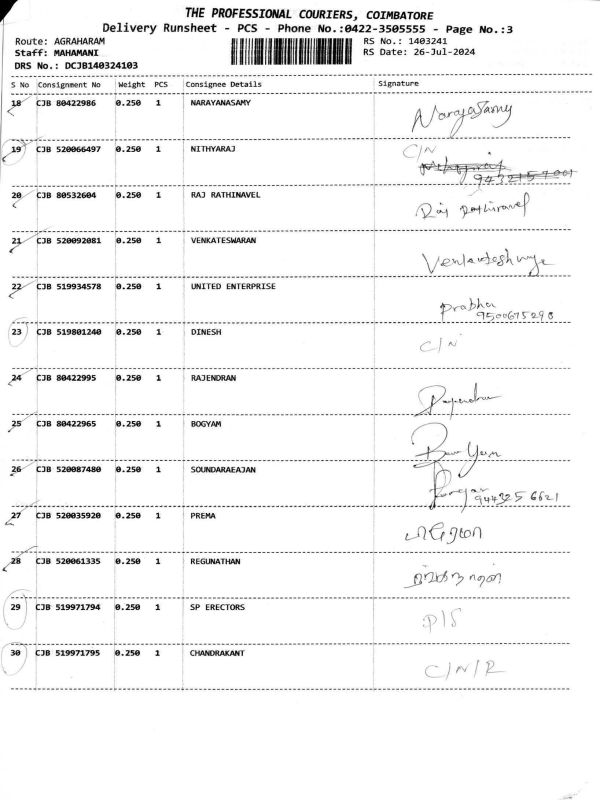 THE PROFESSIONAL COURIERS, COIMBATORE
Delivery Runsheet - PCS - Phone No.:0422-3505555 - Page No.:3
Route: AGRAHARAM RS No.: 1403241
Staff: MAHAMANI RS Date: 26-Jul-2024
DRS No.: DCJB140324103
S No Consignment No Weight PCS Consignee Details Signature
18 CJB 80422986 0.250 1 NARAYANASAMY Narayasamy
19 CJB 520066497 0.250 1 NITHYARAJ C/N
20 CJB 80532604 0.250 1 RAJ RATHINAVEL Raj Rathinavel
21 CJB 520092081 0.250 1 VENKATESWARAN
22 CJB 519934578 0.250 1 UNITED ENTERPRISE Prabhu
9500675298
23 CJB 519801240 0.250 1 DINESH C/N
24 CJB 80422995 0.250 1 RAJENDRAN Rajendran
25 CJB 80422965 0.250 1 BOGYAM
26 CJB 520087480 0.250 1 SOUNDARAEAJAN
9443256621
27 CJB 520035920 0.250 1 PREMA பிரேமா
28 CJB 520061335 0.250 1 REGUNATHAN
29 CJB 519971794 0.250 1 SP ERECTORS D/S
30 CJB 519971795 0.250 1 CHANDRAKANT C/N/R